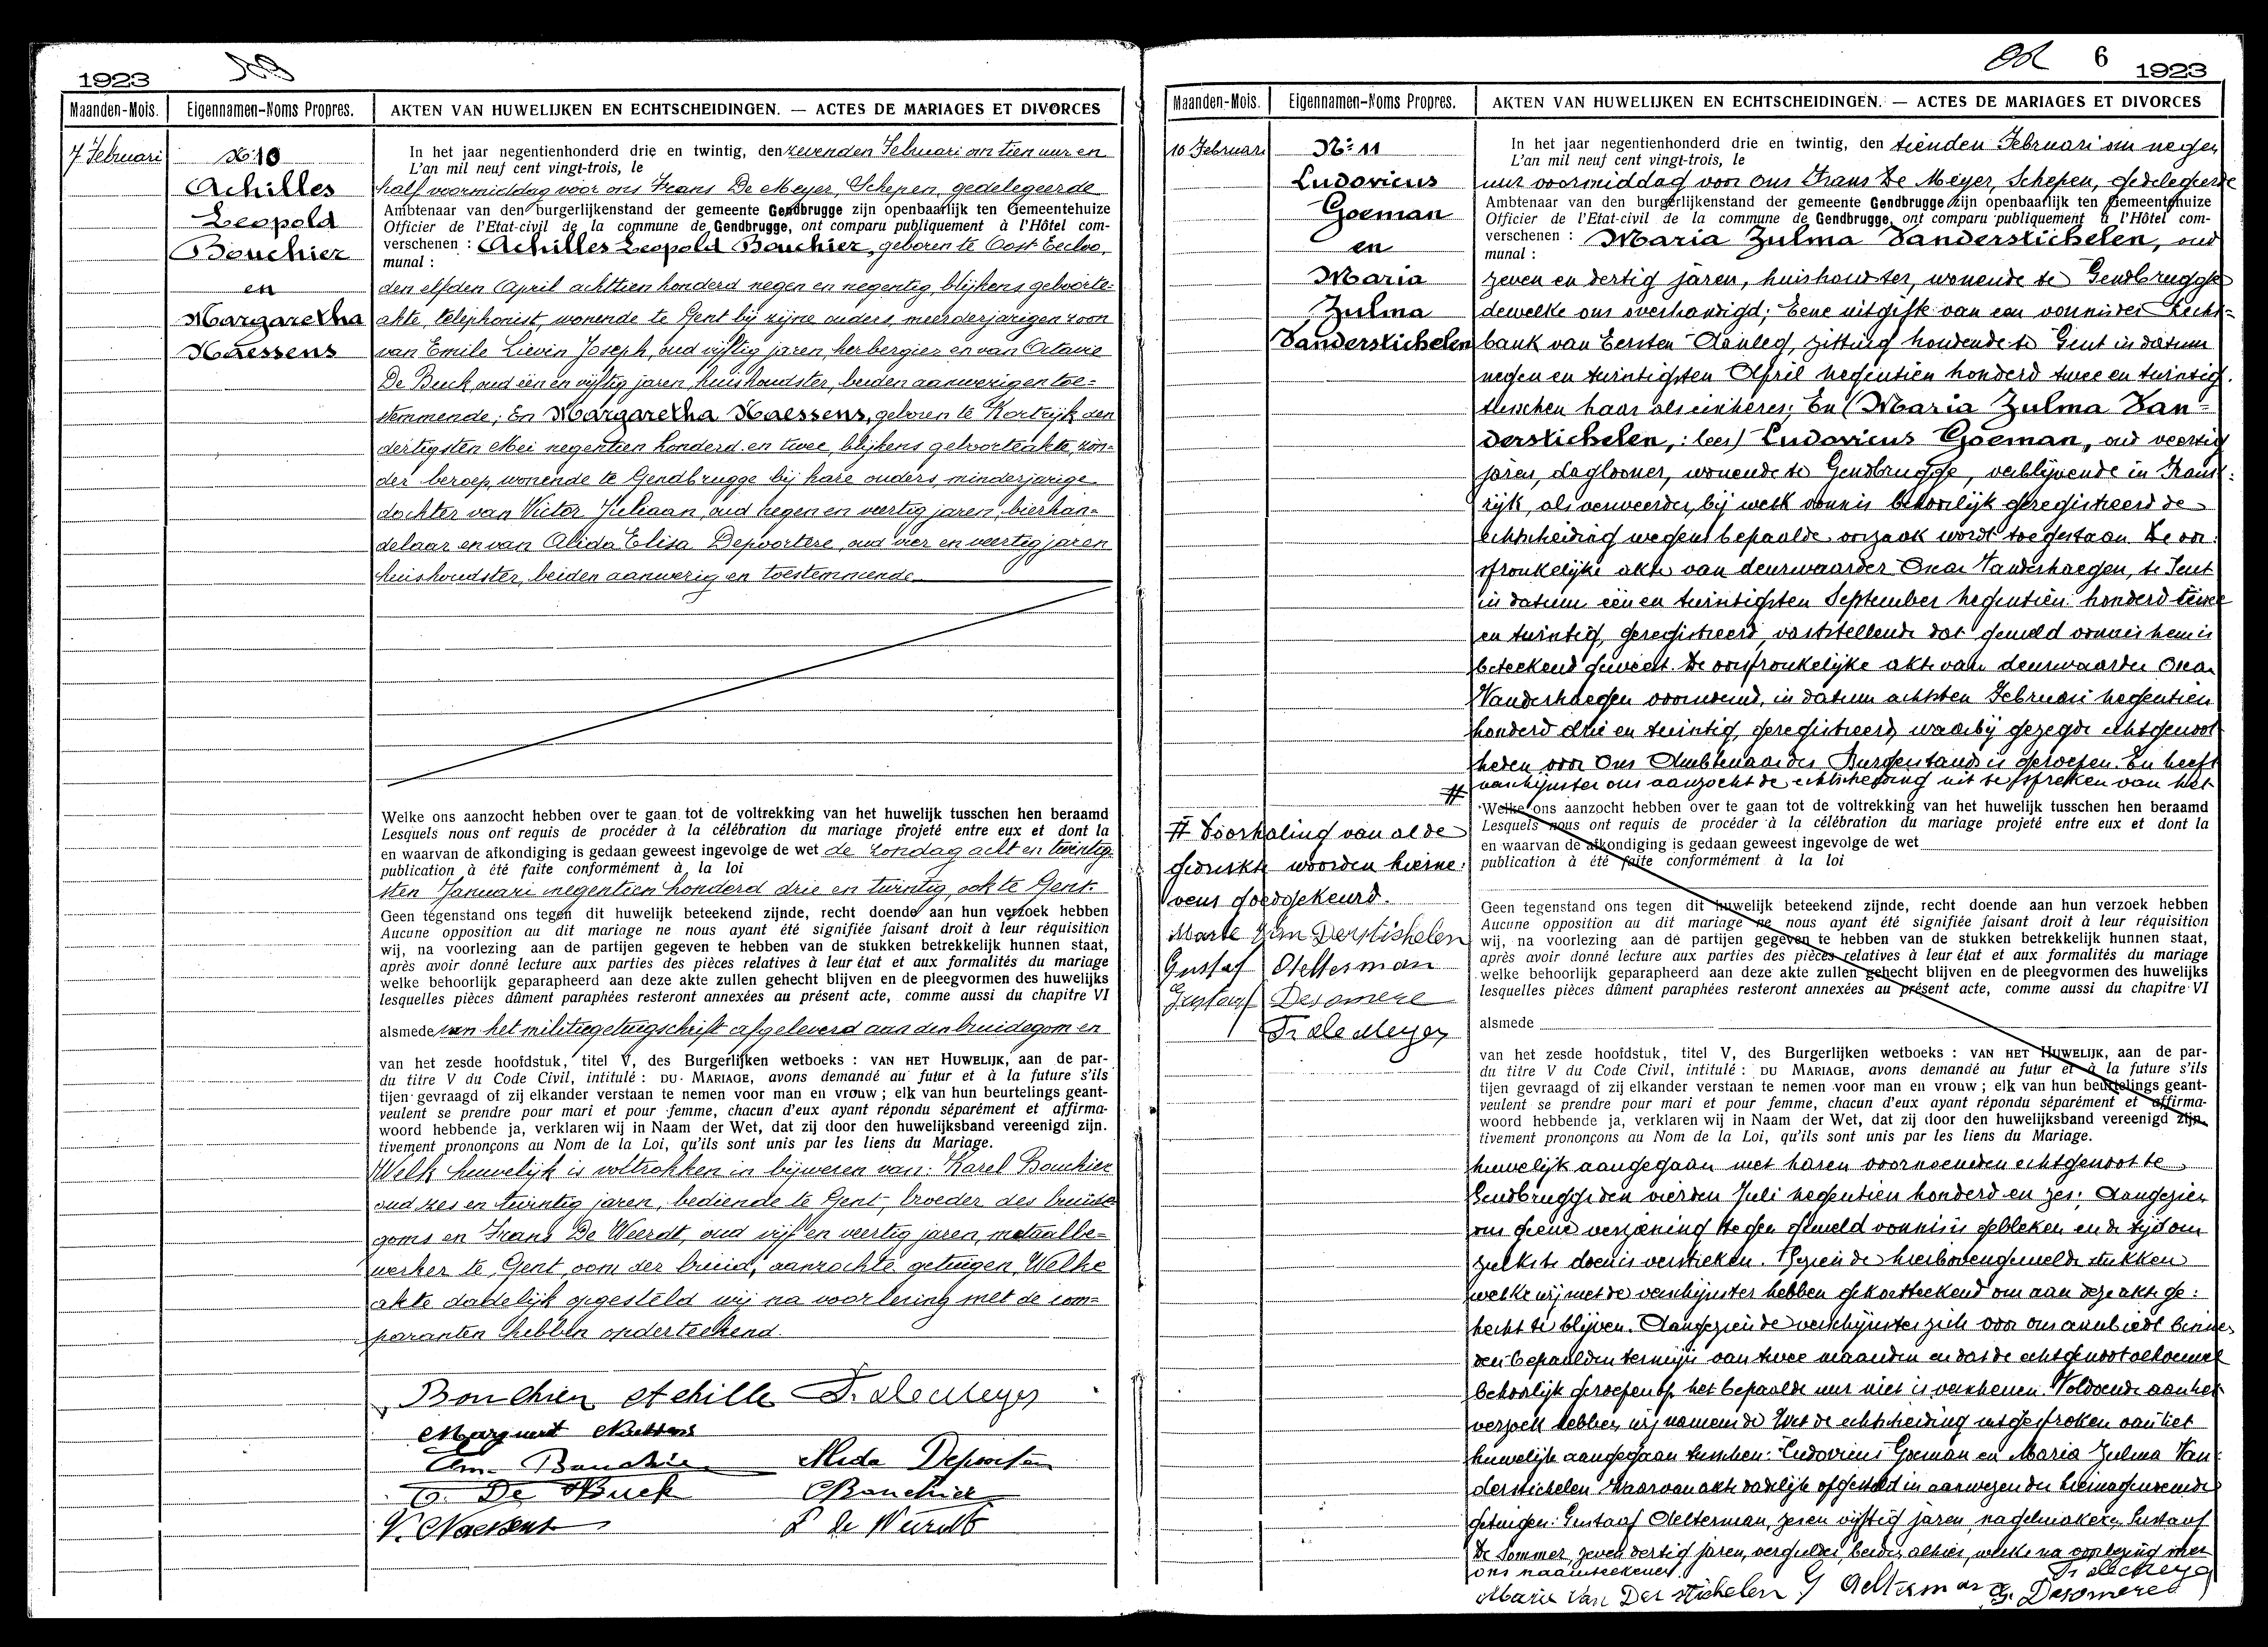 1923
Maanden-Mois. Eigennamen-Noms Propres. AKTEN VAN HUWELIJKEN EN ECHTSCHEIDINGEN. — ACTES DE MARIAGES ET DIVORCES
7 Februari
No 10
Achilles
Leopold
Bouchier
en
Margaretha
Naessens
In het jaar negentienhonderd drie en twintig, den zevenden Februari om tien uur en
L'an mil neuf cent vingt-trois, le
half voormiddag voor ons Frans De Meyer, Schepen, gedelegeerde
Ambtenaar van den burgerlijkenstand der gemeente Gendbrugge zijn openbaarlijk ten Gemeentehuize
Officier de l'Etat-civil de la commune de Gendbrugge, ont comparu publiquement à l'Hôtel com-
verschenen : Achilles Leopold Bouchier, geboren te Oost Eecloo,
munal :
den elfden April achttien honderd negen en negentig, blijkens geboorte-
akte, telephonist, wonende te Gent bij zijne ouders, meerderjarigen zoon
van Emile Lievin Joseph, oud vijftig jaren, herbergier en van Octavie
De Buck, oud een en vijftig jaren, huishoudster, beiden aanwezig en toe-
stemmende; En Margaretha Naessens, geboren te Kortrijk den
dertigsten Mei negentien honderd en twee, blijkens geboorteakte, zon-
der beroep, wonende te Gendbrugge bij hare ouders, minderjarige
dochter van Victor Juliaan, oud negen en veertig jaren, bierhan-
delaar en van Alida Elisa Depoortere, oud vier en veertig jaren
huishoudster, beiden aanwezig en toestemmende
Welke ons aanzocht hebben over te gaan tot de voltrekking van het huwelijk tusschen hen beraamd
Lesquels nous ont requis de procéder à la célébration du mariage projeté entre eux et dont la
en waarvan de afkondiging is gedaan geweest ingevolge de wet de zondag acht en twintig
publication à été faite conformément à la loi
sten Januari negentien honderd drie en twintig, ook te Gent.
Geen tegenstand ons tegen dit huwelijk beteekend zijnde, recht doende aan hun verzoek hebben
Aucune opposition au dit mariage ne nous ayant été signifiée faisant droit à leur réquisition
wij, na voorlezing aan de partijen gegeven te hebben van de stukken betrekkelijk hunnen staat,
après avoir donné lecture aux parties des pièces relatives à leur état et aux formalités du mariage
welke behoorlijk geparapheerd aan deze akte zullen gehecht blijven en de pleegvormen des huwelijks
lesquelles pièces dûment paraphées resteront annexées au présent acte, comme aussi du chapitre VI
alsmede van het militiegetuigschrift afgeleverd aan den bruidegom en
van het zesde hoofdstuk, titel V, des Burgerlijken wetboeks : VAN HET HUWELIJK, aan de par-
du titre V du Code Civil, intitulé : DU MARIAGE, avons demandé au futur et à la future s'ils
tijen gevraagd of zij elkander verstaan te nemen voor man en vrouw ; elk van hun beurtelings geant-
veulent se prendre pour mari et pour femme, chacun d'eux ayant répondu séparément et affirma-
woord hebbende ja, verklaren wij in Naam der Wet, dat zij door den huwelijksband vereenigd zijn.
tivement prononçons au Nom de la Loi, qu'ils sont unis par les liens du Mariage.
Welk huwelijk is voltrokken in bijwezen van: Karel Bouchier
oud zes en twintig jaren, bediende te Gent, broeder des bruide
goms en Frans De Weerdt, oud vijf en veertig jaren, metaalbe-
werker te Gent, oom der bruid, aanzochte getuigen, Welke
akte dadelijk opgesteld wij na voorlezing met de com-
paranten hebben onderteekend.
Bouchier Achille Fr. de Meyer
Marguerit Naessens
Em. Bouchier Alida Deportere
O. De Buck C Bouchier
V. Naessens F de Weirdt
6
1923
Maanden-Mois. Eigennamen-Noms Propres. AKTEN VAN HUWELIJKEN EN ECHTSCHEIDINGEN. — ACTES DE MARIAGES ET DIVORCES
10 Februari
No 11
Ludovicus
Goeman
en
Maria
Zulma
Vanderstichelen
In het jaar negentienhonderd drie en twintig, den tienden Februari om negen
L'an mil neuf cent vingt-trois, le
uur voormiddag voor ons Frans De Meyer, Schepen, Gedelegeerde
Ambtenaar van den burgerlijkenstand der gemeente Gendbrugge zijn openbaarlijk ten Gemeentehuize
Officier de l'Etat-civil de la commune de Gendbrugge, ont comparu publiquement à l'Hôtel com-
verschenen : Maria Zulma Vanderstichelen, oud
munal :
zeven en dertig jaren, huishoudster, wonende te Gendbrugge
dewelke ons overhandigd; Eene uitgifte van een vonnis der Recht-
bank van Eersten Aanleg, zitting houdende te Gent in datum
negen en twintigsten April negentien honderd twee en twintig.
tusschen haar als eischeres; En (Maria Zulma Van-
derstichelen, : lees) Ludovicus Goeman, oud veertig
jaren, daglooner, wonende te Gendbrugge, verblijvende in Frank-
rijk, als verweerder, bij welk vonnis behoorlijk geregistreerd de
echtscheiding wegens bepaalde oorzaak wordt toegestaan. De oor-
spronkelijke akte van deurwaarder Oscar Vanderhaegen, te Gent
in datum een en twintigsten September negentien honderd twee
en twintig, geregistreerd, vaststellende dat gemeld vonnis hem is
beteekend geweest. De oorspronkelijke akte van deurwaarder Oscar
Vanderhaegen voornoemd, in datum achtsten Februari negentien
honderd drie en twintig, geregistreerd, waarbij gezegde echtgenoot
heden voor Ons Ambtenaar des Burgerstands is geroepen. En heeft
verschijnster ons aanzocht de echtscheiding uit te spreken van het
# Doorhaling van al de
gedrukte woorden hierne-
vens goedgekeurd.
Marie Van Der Stichelen
Gustaf Oelterman
Gustaaf Desomere
Fr. de Meyer
Welke ons aanzocht hebben over te gaan tot de voltrekking van het huwelijk tusschen hen beraamd
Lesquels nous ont requis de procéder à la célébration du mariage projeté entre eux et dont la
en waarvan de afkondiging is gedaan geweest ingevolge de wet
publication à été faite conformément à la loi
Geen tegenstand ons tegen dit huwelijk beteekend zijnde, recht doende aan hun verzoek hebben
Aucune opposition au dit mariage ne nous ayant été signifiée faisant droit à leur réquisition
wij, na voorlezing aan de partijen gegeven te hebben van de stukken betrekkelijk hunnen staat,
après avoir donné lecture aux parties des pièces relatives à leur état et aux formalités du mariage
welke behoorlijk geparapheerd aan deze akte zullen gehecht blijven en de pleegvormen des huwelijks
lesquelles pièces dûment paraphées resteront annexées au présent acte, comme aussi du chapitre VI
alsmede
van het zesde hoofdstuk, titel V, des Burgerlijken wetboeks : VAN HET HUWELIJK, aan de par-
du titre V du Code Civil, intitulé : DU MARIAGE, avons demandé au futur et à la future s'ils
tijen gevraagd of zij elkander verstaan te nemen voor man en vrouw ; elk van hun beurtelings geant-
veulent se prendre pour mari et pour femme, chacun d'eux ayant répondu séparément et affirma-
woord hebbende ja, verklaren wij in Naam der Wet, dat zij door den huwelijksband vereenigd zijn.
tivement prononçons au Nom de la Loi, qu'ils sont unis par les liens du Mariage.
huwelijk aangegaan met haren voornoemden echtgenoot te
Gendbrugge den vierden Juli negentien honderd en zes; Aangezien
ons geene verzoening tegen gemeld vonnis is gebleken en de tijd om
zulks te doen is verstreken. Gezien de hierbovengemelde stukken
welke wij met de verschijnster hebben gekortteekend om aan deze akte ge-
hecht te blijven. Aangezien de verschijnster zich voor ons aanbiedt binnen
den bepaalden termijn van twee maanden en dat de echtgenoot alhoewel
behoorlijk geroepen op het bepaalde uur niet is verschenen. Voldoende aan het
verzoek hebben wij namens de Wet de echtscheiding uitgesproken van het
huwelijk aangegaan tusschen: Ludovicus Goeman en Maria Zulma Van
derstichelen. Waarvan akte dadelijk opgesteld in aanwezen der hiernagenoemde
getuigen: Gustaaf Oelterman, zes en vijftig jaren, nagelmaker, Gustaaf
De Sommer, zeven dertig jaren, vergulder, beiden alhier, welke na voorlezing met
ons naamteekenen.
Fr. de Meyer
Marie Van Der Stichelen G Oelterman G. Desomere